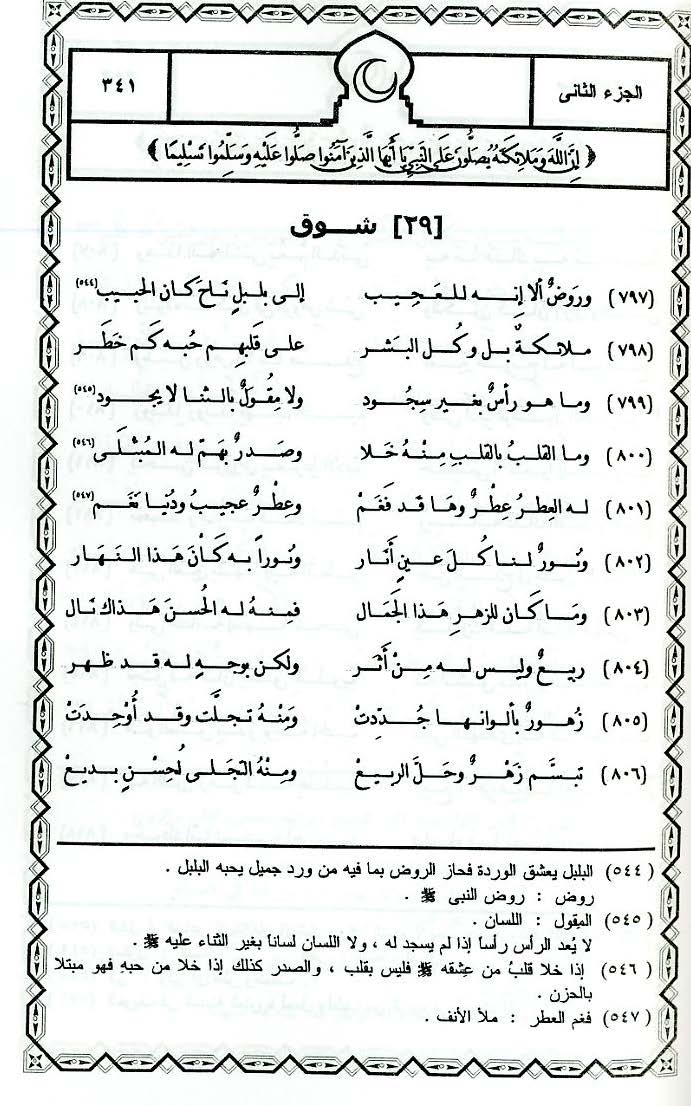 الجزء الثانى
٣٤١
﴿ إِنَّ اللَّهَ وَمَلَائِكَتَهُ يُصَلُّونَ عَلَى النَّبِيِّ يَا أَيُّهَا الَّذِينَ آمَنُوا صَلُّوا عَلَيْهِ وَسَلِّمُوا تَسْلِيمًا ﴾
[٢٩] شــوق
(٧٩٧) وروَضٌ ألا إنه للعَجِيب إلى بلبلٍ نَاحَ كان الحبيب (٥٤٤)
(٧٩٨) ملائكةٌ بل وكُل البَشر على قَلبهم حُبه كَم خَطَر
(٧٩٩) وما هو رأسٌ بغير سجُود ولا مِقْولٌ بالثنا لا يجود (٥٤٥)
(٨٠٠) وما القلبُ بالقلبِ مِنْهُ خَلا وصَدرٌ بَهمّ له المُبْتَلَى (٥٤٦)
(٨٠١) له العِطرُ عِطْرٌ وهَا قد فَغَمْ وعِطْرٌ عجيبٌ ودُنْيا نَغَم (٥٤٧)
(٨٠٢) ونُورٌ لنا كُلَ عينٍ أنَار ونُوراً به كَانَ هَذا النَهَار
(٨٠٣) ومَا كان للزهرِ هَذا الجَمَال فمِنهُ له الحُسنَ هَذاك نَال
(٨٠٤) ربيعٌ وليس له مِنْ أثَر ولكن بوجهٍ له قد ظهر
(٨٠٥) زُهورٌ بألوانها جُدّدتْ وَمِنْهُ تجلَّت وقد أُوْجِدَتْ
(٨٠٦) تبسَّم زَهْرٌ وحَلَ الربيعْ ومِنْهُ التَجلى لحُسْنٍ بديعْ
(٥٤٤) البلبل يعشق الوردة فحاز الروض بما فيه من ورد جميل يحبه البلبل .
روض : روض النبى ﷺ .
(٥٤٥) المِقول : اللسان .
لا يُعد الرأس رأساً إذا لم يسجد له ، ولا اللسان لساناً بغير الثناء عليه ﷺ .
(٥٤٦) إذا خلا قلبُ من عِشقه ﷺ فليس بقلب ، والصدر كذلك إذا خلا من حبهِ فهو مبتلا
بالحزن .
(٥٤٧) فغم العطر : ملأ الأنف .